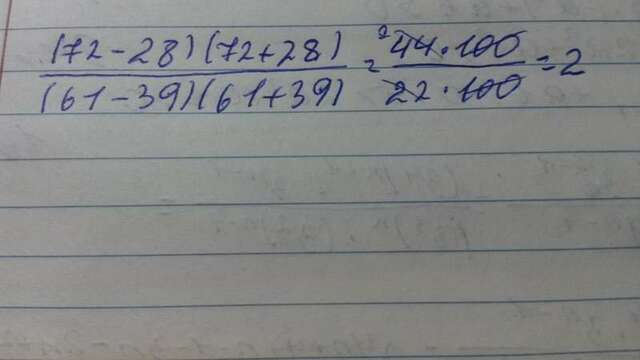 (72-28)(72+28) / (61-39)(61+39) = 2 44·100 / 22·100 = 2